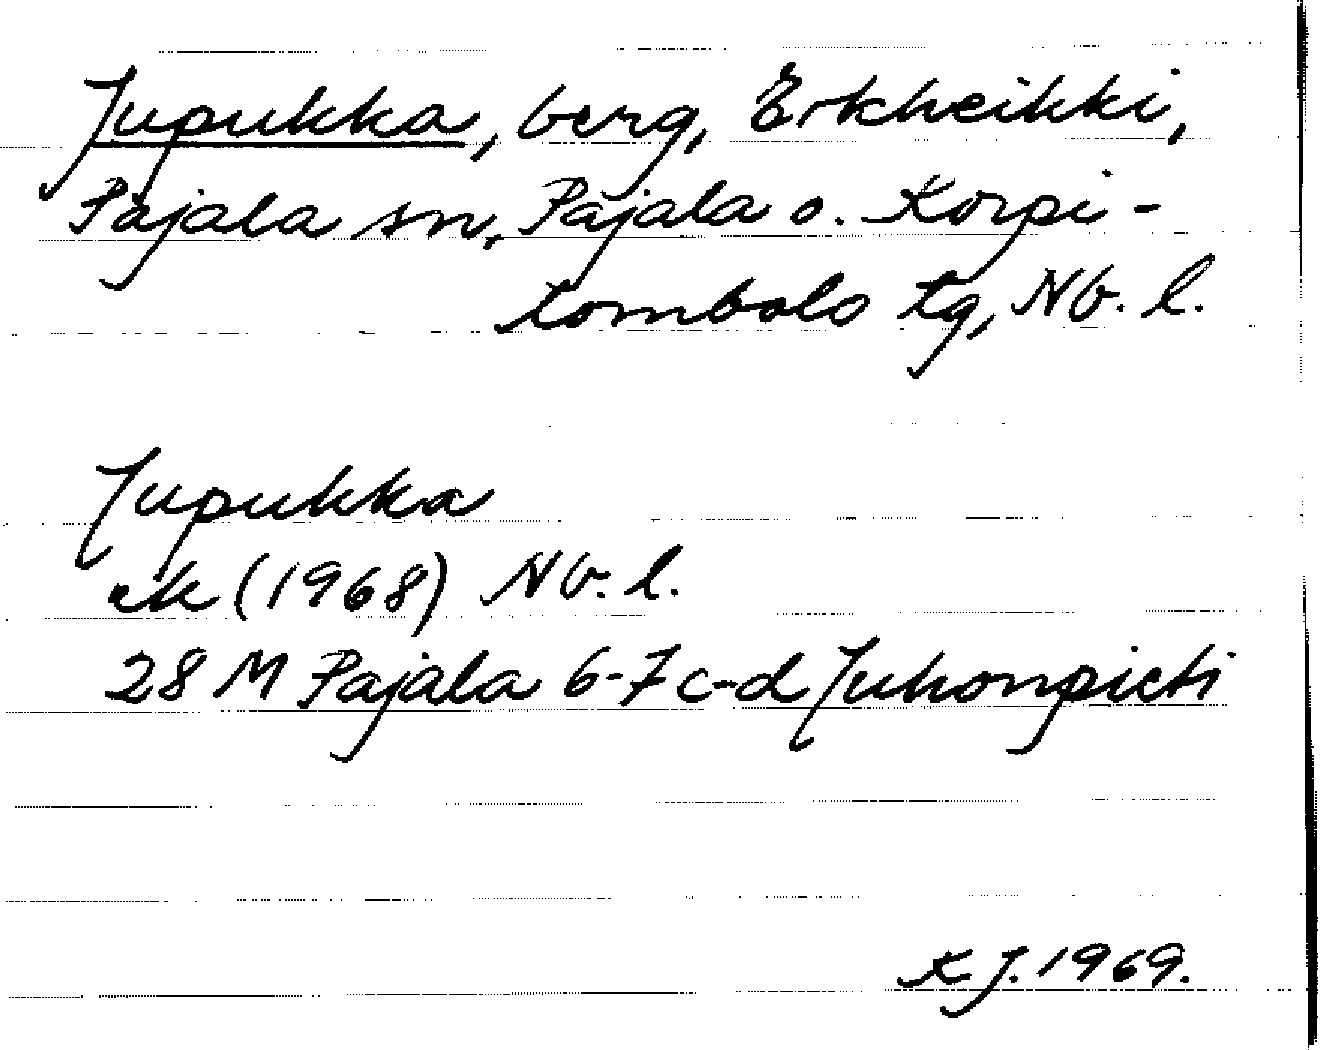 Jupukka, berg, Erkheikki,
Pajala sn, Pajala o. Korpi-
lombolo tg, Nb. l.
Jupukka
ek (1968) Nb. l.
28 M Pajala 6-7 c-d Juhonpieti
KJ. 1969.